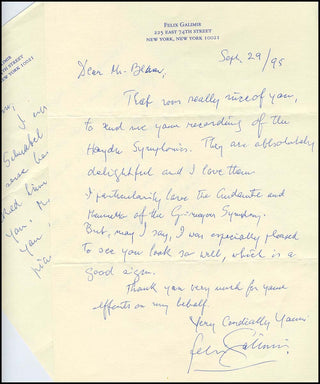 FELIX GALIMIR
225 EAST 74TH STREET
NEW YORK, NEW YORK 10021
Sept 29/95
Dear Mr.
That was really nice of you,
to send me your recording of the
Haydn Symphonies. They are absolutely
delightful and I love them.
I particularly love the Andante and
of the Symphony.
But, may I say, I was especially pleased
to see you look so well, which is a
good sign.
Thank you very much for your
efforts on my behalf.
Very Cordially Yours
Felix Galimir
GALIMIR
74TH STREET
NEW YORK 10021
I
Schnabel
you,
you,